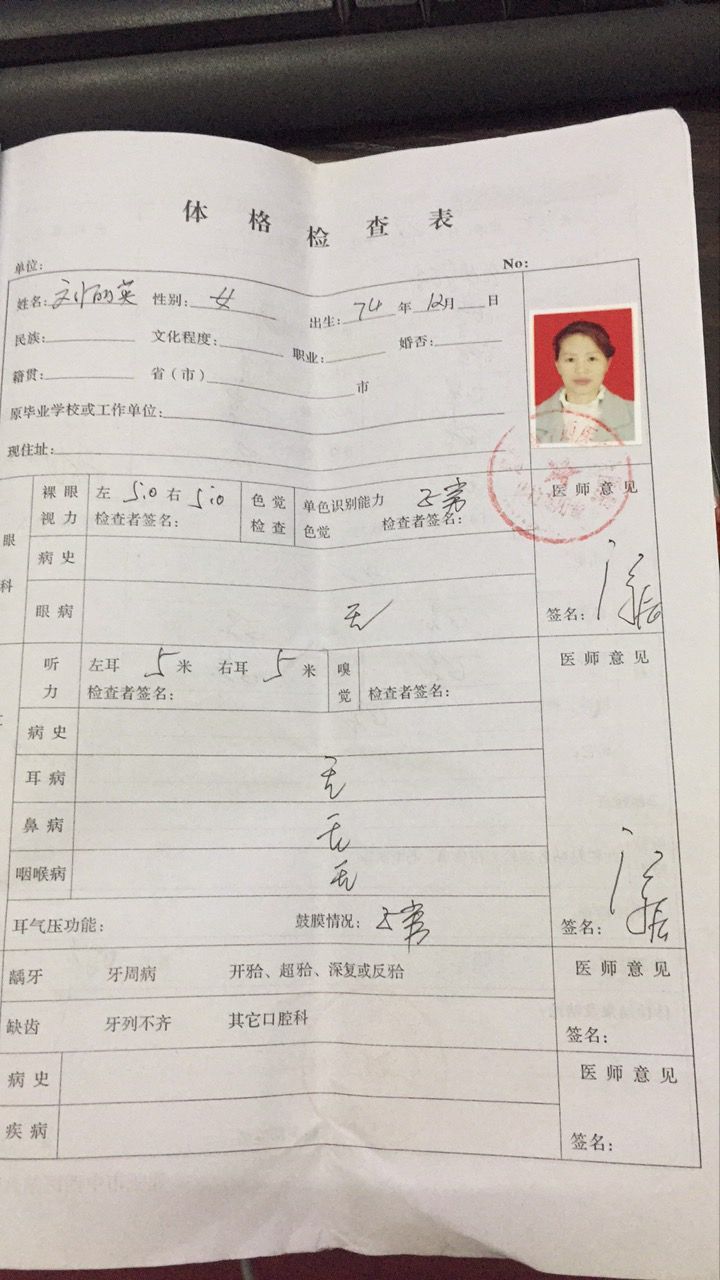 体格检查表
单位: No:
姓名: 刘丽英 性别: 女 出生: 74 年 12月 日
民族: 文化程度: 职业: 婚否:
籍贯: 省（市） 市
原毕业学校或工作单位:
现住址:
眼科
裸眼视力 左 5.0 右 5.0 检查者签名: 色觉检查 单色识别能力 正常 色觉 检查者签名: 医师意见
病史
眼病 无 签名:
听力 左耳 5 米 右耳 5 米 检查者签名: 嗅觉 检查者签名: 医师意见
病史
耳病 无
鼻病 无
咽喉病 无
耳气压功能: 鼓膜情况: 正常 签名:
龋牙 牙周病 开𬌗、超𬌗、深复或反𬌗 医师意见
缺齿 牙列不齐 其它口腔科 签名:
病史 医师意见
疾病 签名: